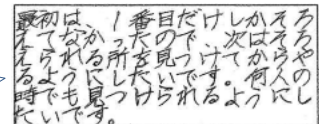 最初は、1番目だけしかそろ
えてなかったので、次はそろ
えられる所を見つけてからや
るようにしたいです。何人の
時でも見つけられるようにし
たいです。